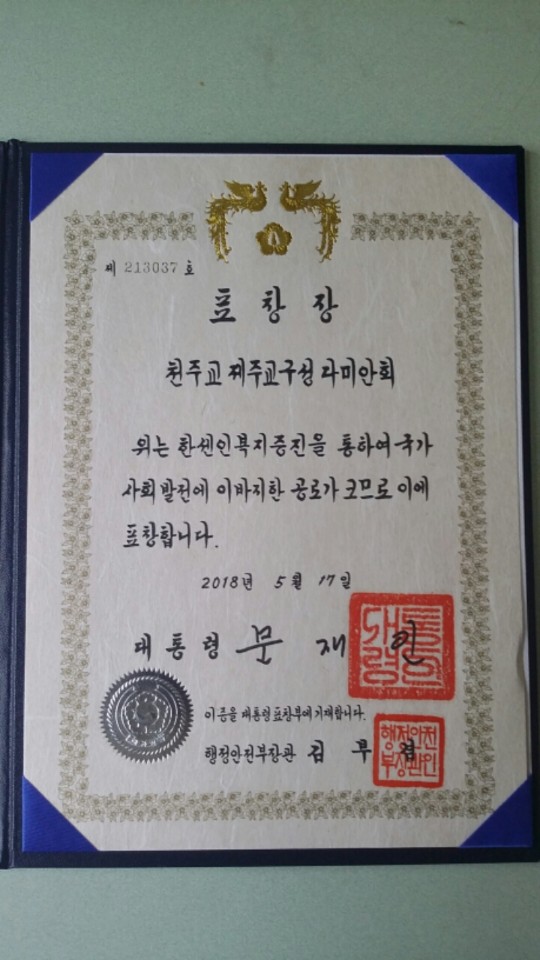 제 213037 호
표 창 장
천주교 제주교구성 다미안회
위는 한센인복지증진을 통하여 국가
사회발전에 이바지한 공로가 크므로 이에
표창합니다.
2018년 5월 17일
대통령 문 재 인
이 증을 대통령표창부에 기재합니다.
행정안전부장관 김 부 겸
행정안전
부장관인